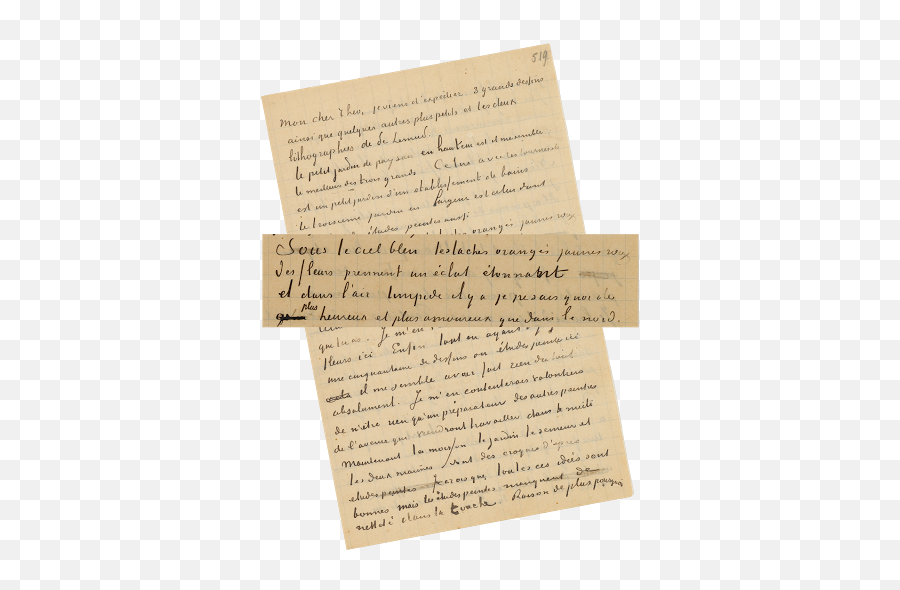 519
Mon cher Theo, je viens d'expédier 3 grands dessins
ainsi que quelques autres plus petits et les deux
lithographies de de Lemud.
le petit jardin de paysan en hauteur est il me semble
le meilleur des trois grands. Celui avec les tournesols
est un petit jardin d'un etablissement de bains
le troisieme jardin en largeur est celui dont
études peintes aussi
taches orangés jaunes roug
Sous le ciel bleu les taches orangés jaunes roug
des fleurs prennent un éclat étonnant
et dans l'air limpide il y a je ne sais quoi de
plus
heureux et plus amoureux que dans le nord.
que tu as. Je m'en
fleurs ici Enfin tout en ayant
une cinquantaine de dessins ou études peintes ici
il me semble avoir fait rien du tout
absolument. Je m'en contenterais volontiers
de n'être rien qu'un préparateur des autres peintres
de l'avenir qui viendront travailler dans le midi
Maintenant la moisson le jardin le semeur et
les deux marines sont des croquis d'après
etudes peintes Je crois que toutes ces idées sont
bonnes mais les études peintes manquent de
netteté dans la touche. Raison de plus pourquoi